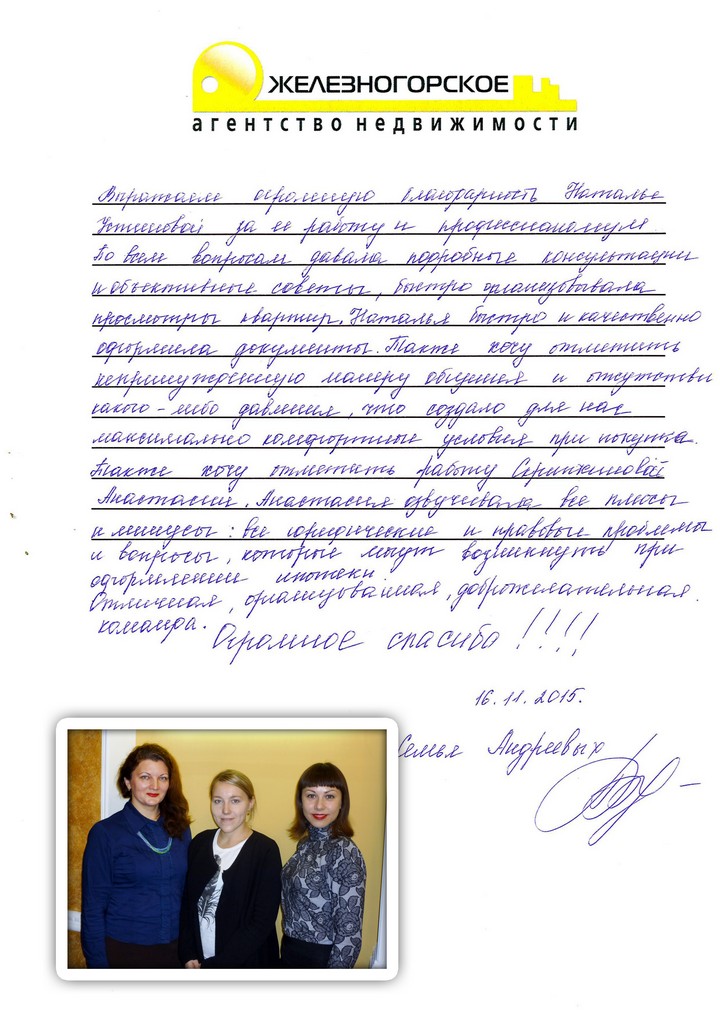 ЖЕЛЕЗНОГОРСКОЕ
агентство недвижимости
Выражаем огромную благодарность Наталье
за ее работу и профессионализм
По всем вопросам давала подробные консультации
и объективные советы, быстро организовывала
просмотры квартир. Наталья быстро и качественно
оформила документы. Также хочу отметить
непринужденную манеру общения и отсутствие
какого-либо давления, что создало для нас
максимально комфортные условия при покупке.
Также хочу отметить работу
Анастасии. Анастасия озвучивала все плюсы
и минусы: все юридические и правовые проблемы
и вопросы, которые могут возникнуть при
оформлении ипотеки.
Отличная, организованная, доброжелательная
команда. Огромное спасибо !!!!
16.11.2015.
Семья Андреевых